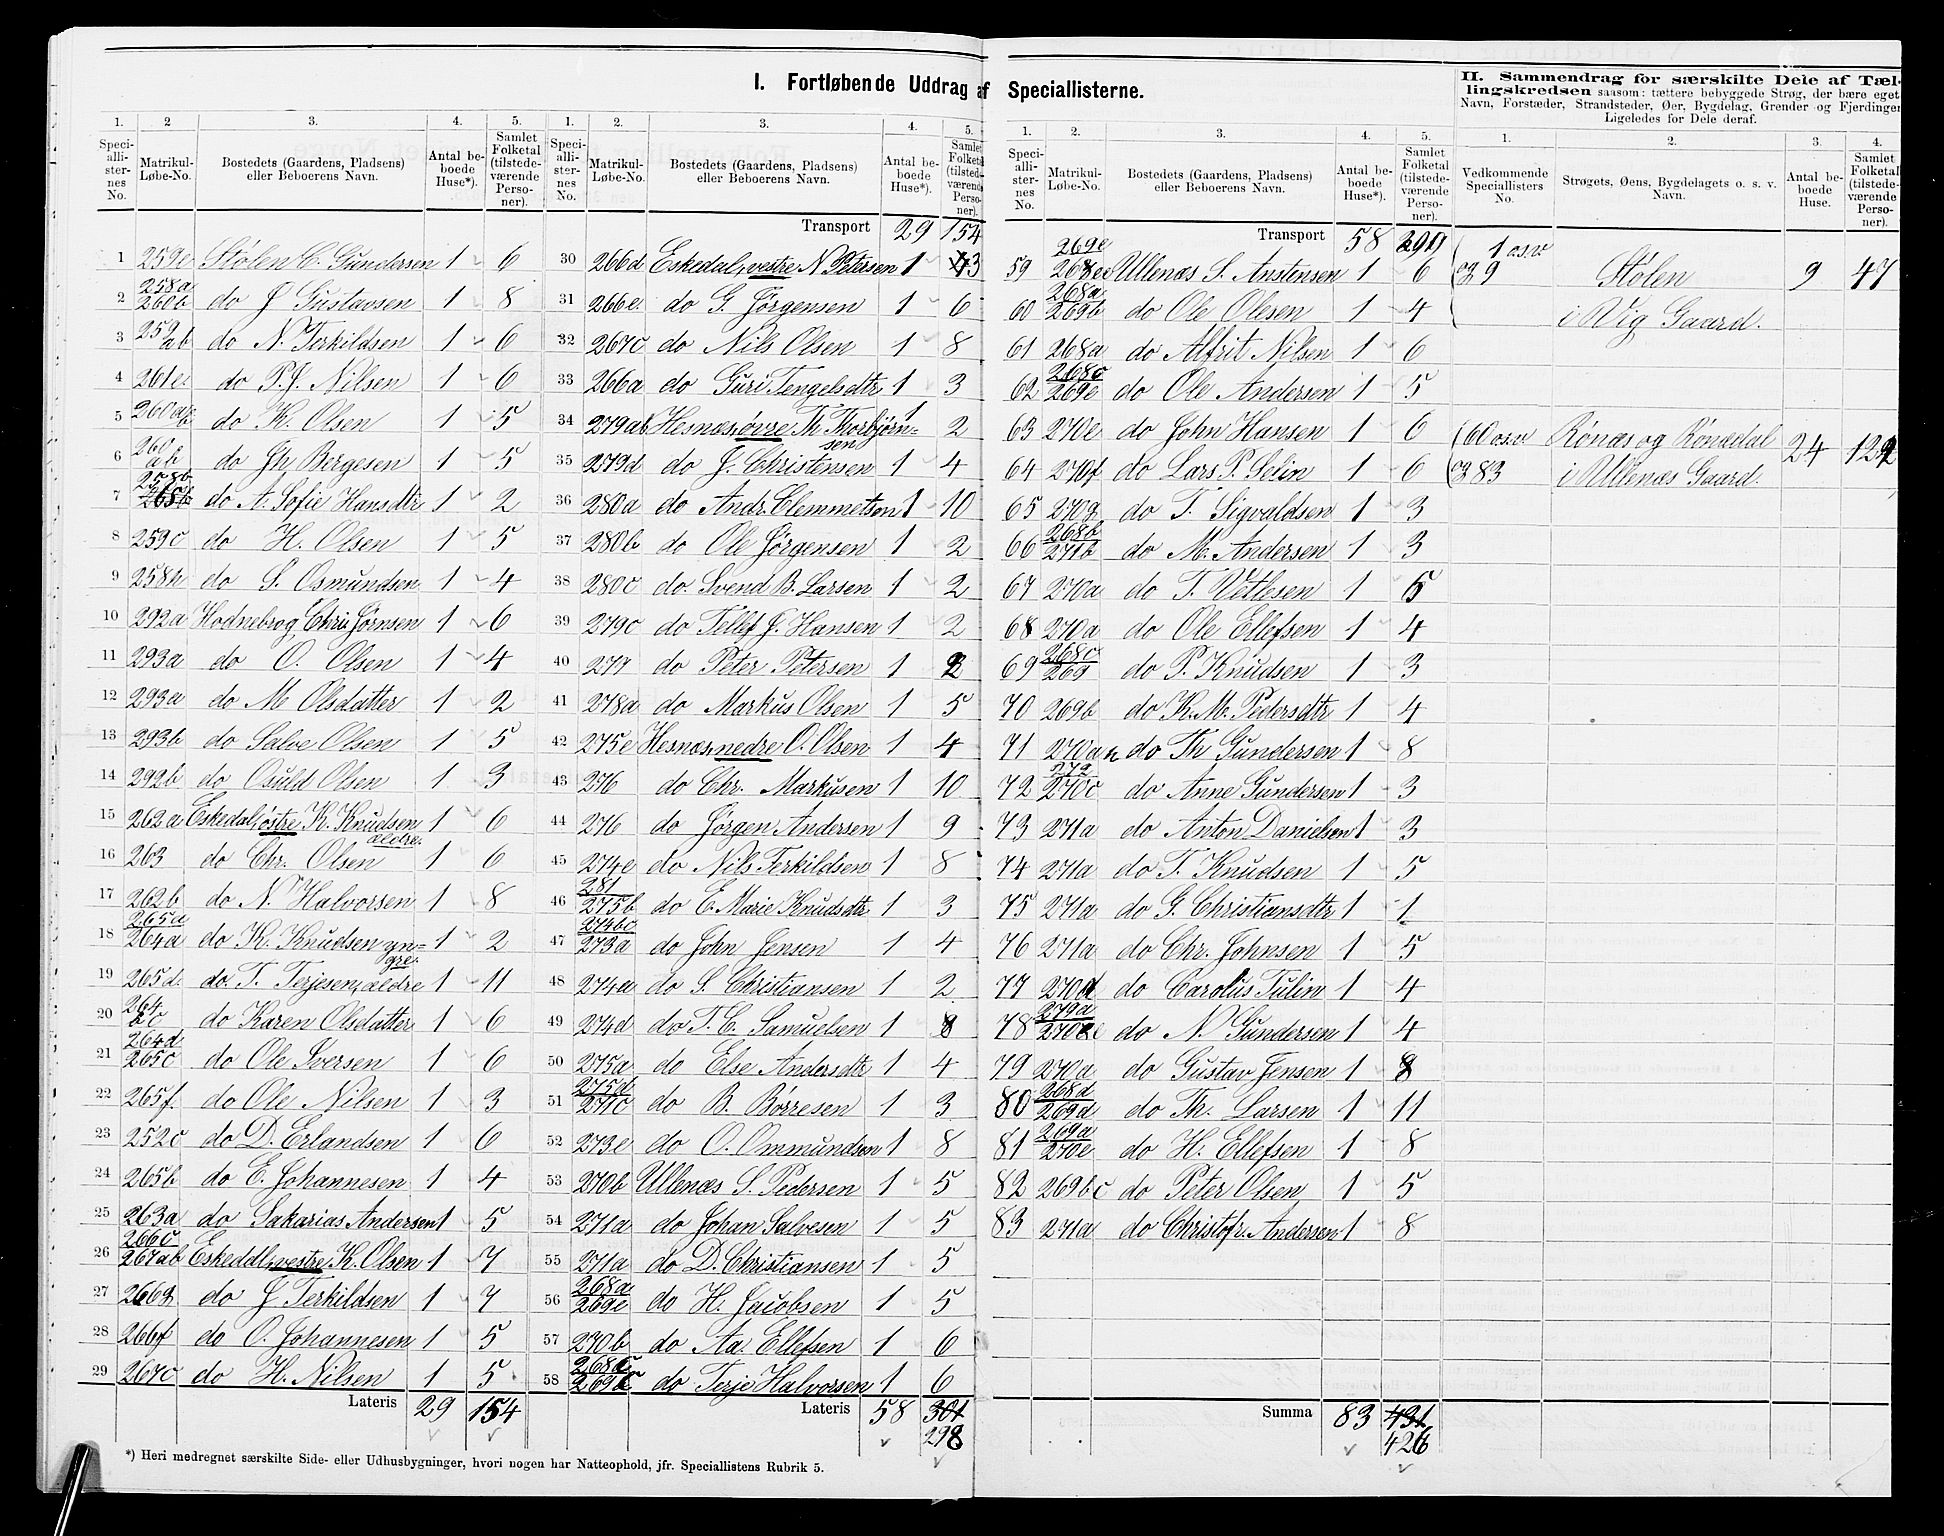 I. Fortløbende Uddrag af Speciallisterne.
II. Sammendrag for særskilte Dele af Tæl-
lingskredsen saasom: tættere bebyggede Strøg, der bære eget
Navn, Forstæder, Strandsteder, Øer, Bygdelag, Grender og Fjerdinger
Ligeledes for Dele deraf.
1. 2 3. 4. 5.
Speci-alli-ster-nes No. Matrikul-Løbe-No. Bostedets (Gaardens, Pladsens) eller Beboerens Navn. Antal be-boede Huse*). Samlet Folketal (tilstede-værende Perso-ner).
1 259e Stølen C. Gundersen 1 6
2 258a 260b do J Gustavsen 1 8
3 259 ab do N. Terkildsen 1 6
4 261e do P. J. Nilsen 1 6
5 260ab do K. Olsen 1 5
6 260 ab do Jh Bergesen 1 5
7 258b do A. Sofie Hansdtr 1 2
8 259c do H. Olsen 1 5
9 258h do S. Osmundsen 1 4
10 292a Hodnebrog Chris Jörnsen 1 6
11 293a do O. Olsen 1 4
12 293a do M Olsdatter 1 2
13 293b do Salve Olsen 1 5
14 292b do Osuld Olsen 1 3
15 262a Eskedal, østre K. Knudsen ældre. 1 6
16 263 do Chr. Olsen 1 6
17 262b do N. Halvorsen 1 8
18 265a 264a do K. Knudsen yn-gre. 1 2
19 265d. do. T. Terjesen, ældre 1 11
20 264 bc do Karen Olsdatter 1 6
21 264d 265c do Ole Iversen 1 6
22 265f. do Ole Nilsen 1 3
23 252c do D. Erlandsen 1 6
24 265b do E. Johannesen 1 4
25 263a do Sakarias Andersen 1 5
26 266c 267ab Eskedal, vestre K. Olsen 1 7
27 266g do J Terkildsen 1 7
28 266f do O. Johannesen 1 5
29 267c do H. Nilsen 1 5
Lateris 29 154
*) Heri medregnet særskilte Side- eller Udhusbygninger, hvori nogen har Natteophold, jfr. Speciallistens Rubrik 5.
1. 2. 3. 4. 5.
Speci-alli-ster-nes No. Matrikul-Løbe-No. Bostedets (Gaardens, Pladsens) eller Beboerens Navn. Antal be-boede Huse*). Samlet Folketal (tilstede-værende Perso-ner).
Transport 29 154
30 266d Eskedal, vestre N. Petersen 1 3
31 266e. do G. Jörgensen 1 6
32 267c do Nils Olsen 1 8
33 266a do Guri Tengelsdtr 1 3
34 279ab Hesnæs, øvre Th Thorbjörn-sen 1 2
35 279d do J. Christensen 1 4
36 280a do Andr. Clemmetsen 1 10
37 280b do Ole Jörgensen 1 2
38 280c do. Svend B. Larsen 1 2
39 279c do Tellef J. Hansen 1 2
40 279 do Peter Petersen 1 2
41 278a do Markus Olsen 1 5
42 275e Hesnæs, nedre O. Olsen 1 4
43 276 do Chr. Markusen 1 10
44 276 do Jörgen Andersen 1 9
45 274e do Nils Terkildsen 1 8
46 281 275b do E. Marie Knudsdtr 1 3
47 274bc 273a do John Jensen 1 4
48 274a do S. Christiansen 1 2
49 274d do T. C. Samuelsen 1 8
50 275a do Else Andersdtr 1 4
51 275d 271c do B. Börresen 1 3
52 273e do O. Ommundsen 1 8
53 270b Ullenæs S. Pedersen 1 5
54 271a do Johan Salvesen 1 5
55 271a do D. Christiansen 1 5
56 268a 269c do H. Jacobsen 1 5
57 270b do Aa. Ellefsen 1 6
58 do Terje Halvorsen 1 6
Lateris 58 301
298
1. 2. 3. 4. 5.
Speci-alli-ster-nes No. Matrikul-Løbe-No. Bostedets (Gaardens, Pladsens) eller Beboerens Navn. Antal be-boede Huse*). Samlet Folketal (tilstede-værende Perso-ner).
Transport 58
59 269e 268e Ullenæs S. Anstensen 1 6
60 268a 269b do Ole Olesen 1 4
61 268a do Alfrit Nilsen 1 6
62 268c 269e do Ole Andersen 1 5
63 270e do John Hansen 1 6
64 270f do Lars P. Selin 1 6
65 270g do T. Sigvaldsen 1 3
66 268b 271b do M. Andersen 1 3
67 270a do T. Vetlesen 1 5
68 270a do Ole Ellefsen 1 4
69 268c 269 do P. Knudsen 1 3
70 269b do K. M. Pedersdtr 1 4
71 270a do Th Gundersen 1 8
72 272 270c do Anne Gundersen 1 3
73 271a do Anton Danielsen 1 3
74 271a do T. Knudsen 1 5
75 271a do G. Christiansdtr 1 1
76 271a do Chr. Johnsen 1 5
77 270d do Carolus Tulin 1 4
78 279a do N. Gundersen 1 4
79 270a do Gustav Jensen 1 8
80 268d 269d do Th. Larsen 1 11
81 269a 270e do H. Ellefsen 1 8
82 269bc do Peter Olsen 1 5
83 271a do Christofr. Andersen 1 8
Summa 83 431
426
1. 2. 3. 4.
Vedkommende Speciallisters No. Strøgets, Øens, Bygdelagets o. s. v. Navn. Antal be-boede Huse. Samlet Folketal (tilstede-værende Perso-ner).
1 o.s.v
og 9 Stølen 9 47
i Vig Gaard.
60 osv Rönæs og Rönedal 24 122
og 83 i Ullenæs Gaard.